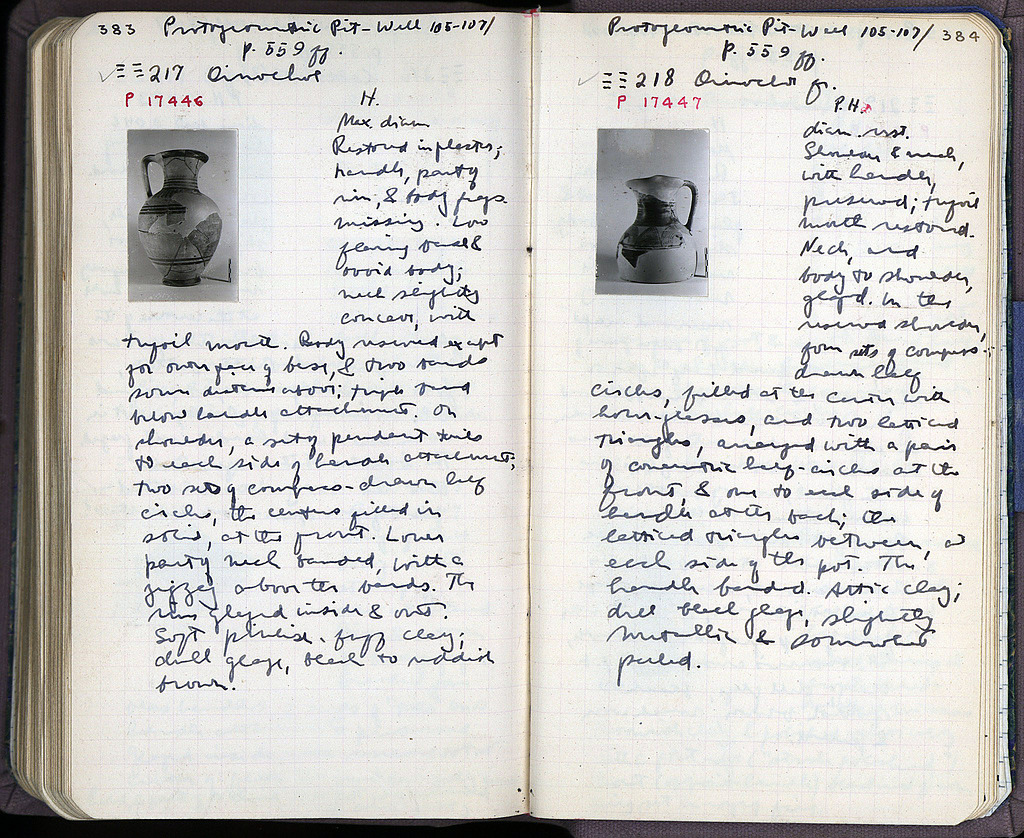 383 Protogeometric Pit-Well 105-107/
p. 559 ff.
217 Oinochoe
P 17446
H.
Max. diam.
Restored in plaster;
handle, part of
rim, & body frags
missing. Low
flaring base &
ovoid body;
neck slightly
concave, with
trefoil mouth. Body reserved except
for outer face of base, & two bands
some distance above; triple band
below handle attachment. On
shoulder, a set of pendent
to each side of handle attachment;
two sets of compass-drawn half
circles, the centers filled in
solid, at the front. Lower
part of neck banded, with a
zigzag above the bands. The
rim glazed inside & out.
Soft pinkish-buff clay;
dull glaze, black to reddish
brown.
Protogeometric Pit-Well 105-107/ 384
p. 559 ff.
218 Oinochoe fr.
P 17447
P.H.
diam. rest.
Shoulder & neck,
with handle,
preserved; trefoil
mouth restored.
Neck, and
body to shoulder,
glazed. In the
reserved shoulder,
four sets of compass-
drawn half
circles, filled at the center with
hour-glasses, and two latticed
triangles, arranged with a pair
of concentric half-circles at the
front, & one to each side of
handle at the back; the
latticed triangles between, at
each side of the pot. The
handle banded. Attic clay;
dull black glaze, slightly
metallic & somewhat
peeled.